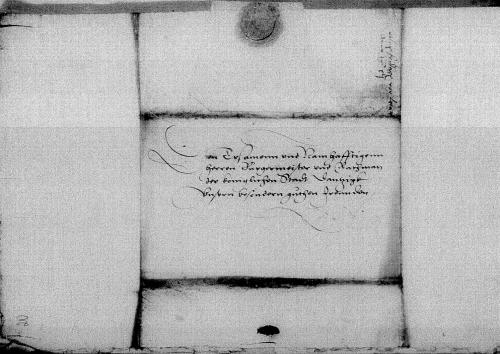 Den Ersamenn vnd Namhafftigenn
herrn Burgermeister vnd Rathman
der koniglichen Stadt Dantzigk
Vnsern besondern gutthen freunden